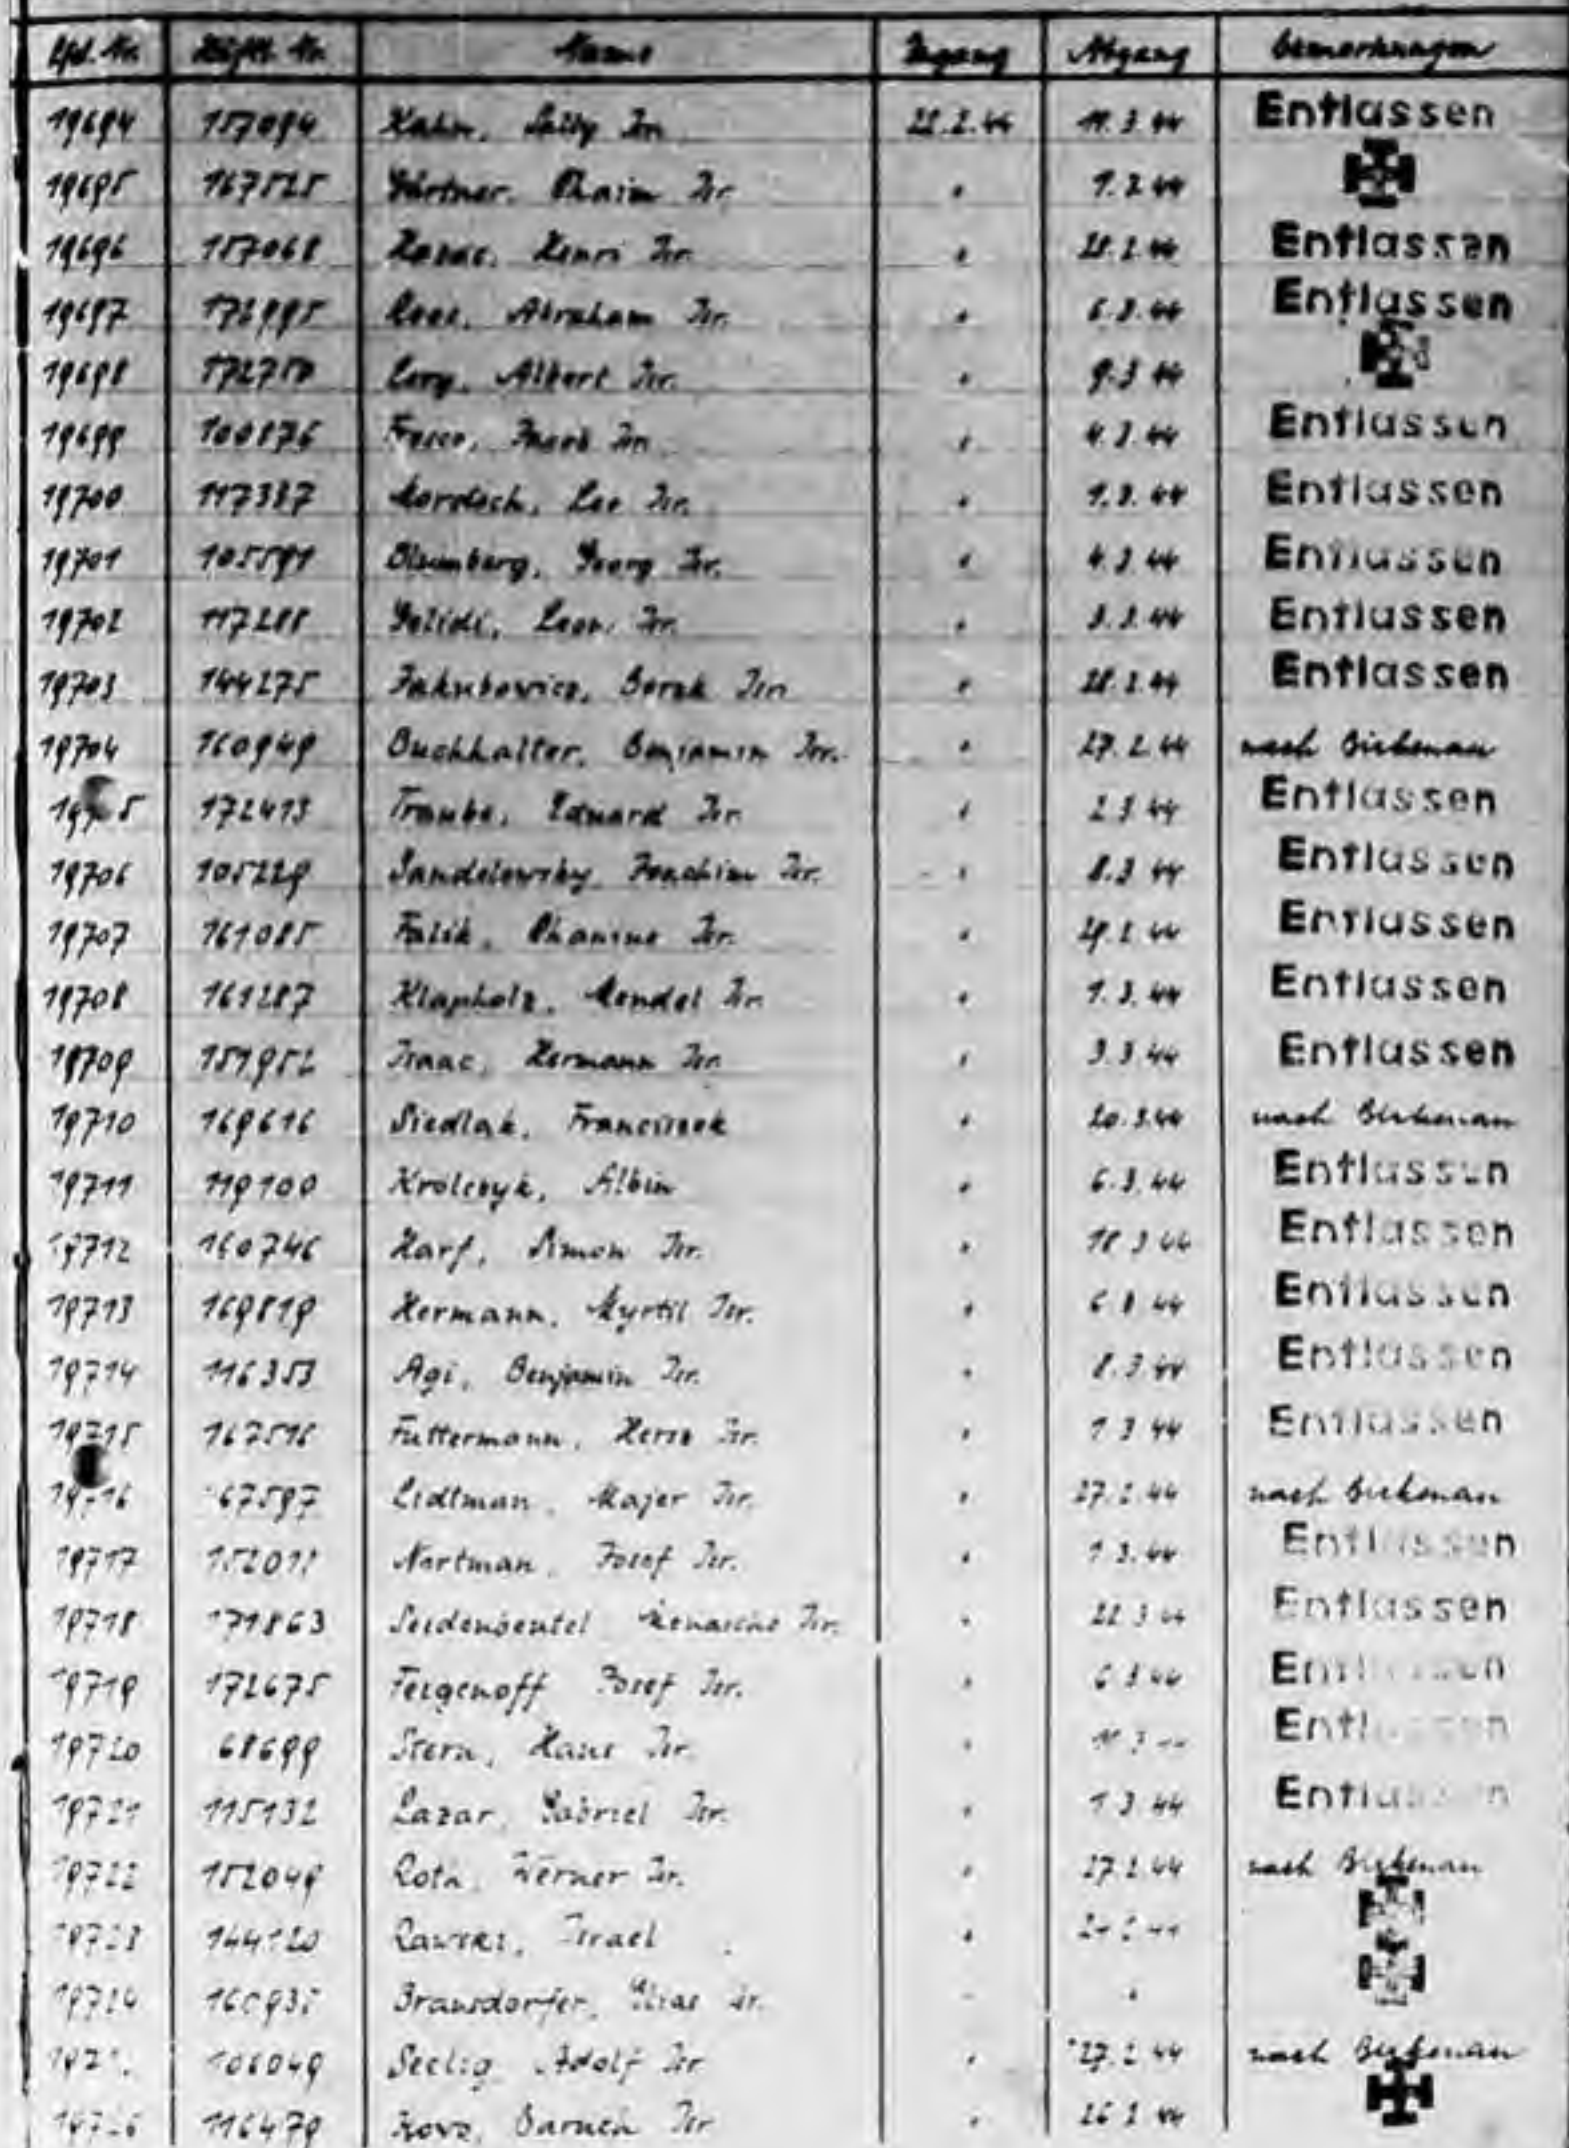 Lfd. Nr. Häftl. Nr. Name Zugang Abgang Bemerkungen
19694 157094 Kahn, Sally Isr. 22.2.44 11.3.44 Entlassen
19695 167525 Gärtner, Chaim Isr. " 1.2.44
19696 157068 Henri Isr. " 28.2.44 Entlassen
19697 172995 Abraham Isr. " 6.3.44 Entlassen
19698 172750 Levy, Albert Isr. " 9.3.44
19699 100876 Isr. " 4.3.44 Entlassen
19700 117387 Mordoch, Leo Isr. " 1.3.44 Entlassen
19701 105591 Blumberg, Georg Isr. " 4.3.44 Entlassen
19702 117288 Leon Isr. " 3.3.44 Entlassen
19703 144275 Jakubowicz, Berek Isr. " 28.2.44 Entlassen
19704 160949 Buchhalter, Benjamin Isr. " 27.2.44 nach Birkenau
172413 Traube, Eduard Isr. " 2.3.44 Entlassen
19706 105229 Sandelowsky, Joachim Isr. " 8.3.44 Entlassen
19707 161085 Falik, Isr. " 29.2.44 Entlassen
19708 161287 Klapholz, Mendel Isr. " 1.3.44 Entlassen
19709 151952 Isaac, Hermann Isr. " 3.3.44 Entlassen
19710 169616 Siedlak, Franciszek " 20.3.44 nach Birkenau
19711 119100 Krolczyk, Albin " 6.3.44 Entlassen
19712 160746 Harf, Simon Isr. " 18.3.44 Entlassen
19713 169819 Hermann, Myrtil Isr. " 6.3.44 Entlassen
19714 116353 Agi, Benjamin Isr. " 8.3.44 Entlassen
19715 167516 Futtermann, Hersz Isr. " 1.3.44 Entlassen
19716 67597 Lidtman, Majer Isr. " 27.2.44 nach Birkenau
19717 Nortman, Josef Isr. " 1.3.44 Entlassen
19718 171863 Seidenbeutel Menasche Isr. " 22.3.44 Entlassen
19719 172675 Feigenoff Josef Isr. " 6.3.44 Entlassen
19720 68699 Stern, Hans Isr. " Entlassen
19721 115132 Lazar, Gabriel Isr. " 1.3.44 Entlassen
19722 152049 Roth, Werner Isr. " 27.2.44 nach Birkenau
19723 144120 Rawski, Israel "
19724 Bransdorfer, Isr. "
106049 Seelig, Adolf Isr. " 27.2.44 nach Birkenau
116479 Baruch Isr. " 26.2.44